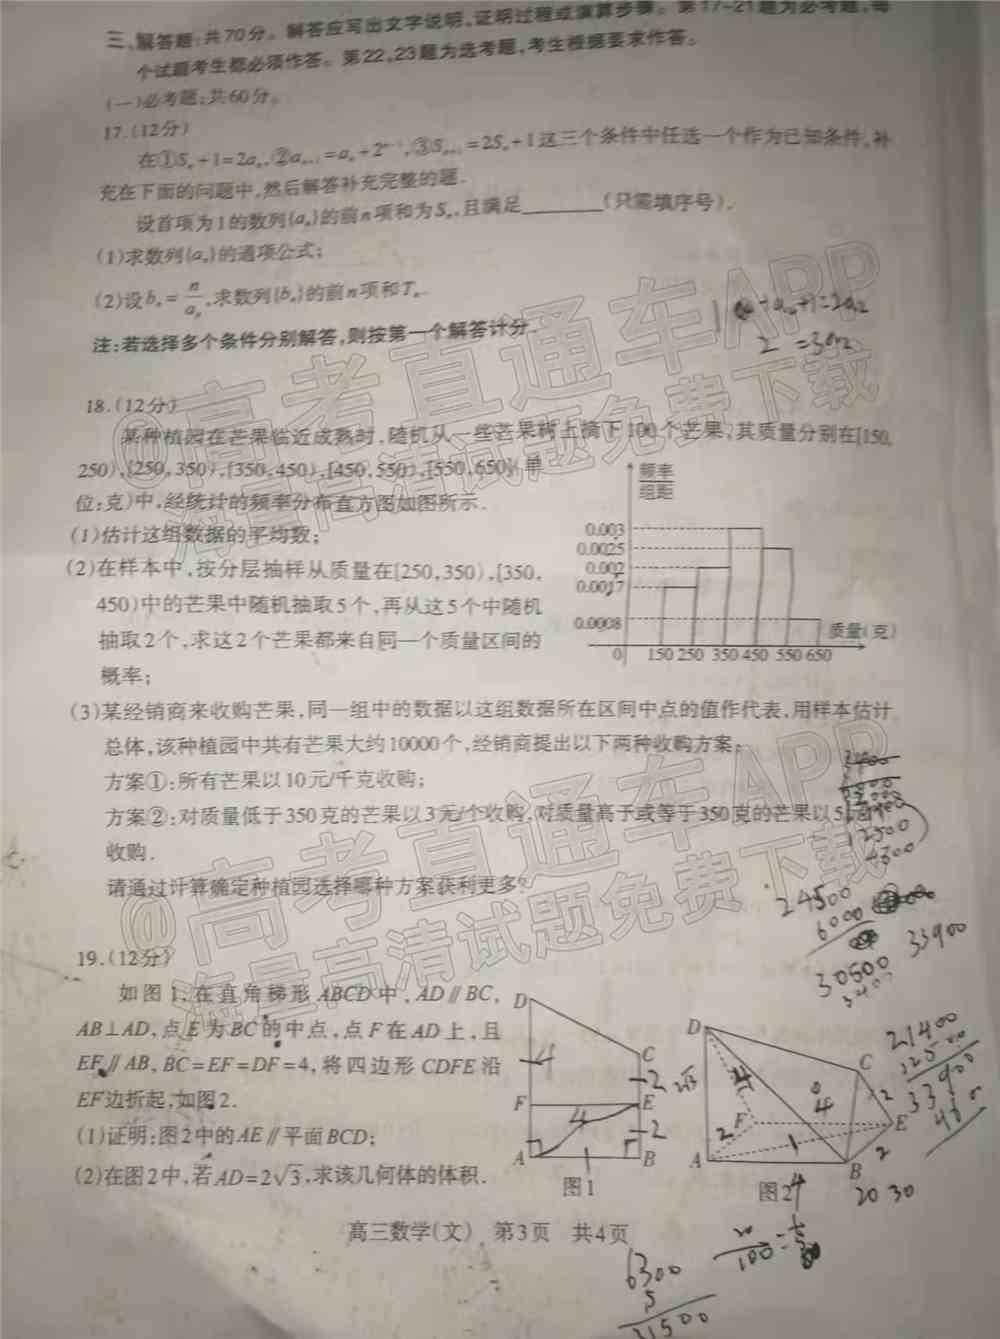 三、解答题:共70分。解答应写出文字说明、证明过程或演算步骤。第17~21题为必考题,每
个试题考生都必须作答。第22,23题为选考题,考生根据要求作答。
(一)必考题:共60分。
17.(12分)
在①Sₙ+1=2aₙ,②aₙ₊₁=aₙ+2ⁿ⁻¹,③Sₙ₊₁=2Sₙ+1这三个条件中任选一个作为已知条件,补
充在下面的问题中,然后解答补充完整的题.
设首项为1的数列{aₙ}的前n项和为Sₙ,且满足________(只需填序号).
(1)求数列{aₙ}的通项公式;
(2)设bₙ=n/aₙ,求数列{bₙ}的前n项和Tₙ.
注:若选择多个条件分别解答,则按第一个解答计分.
2 =3a₂
18.(12分)
某种植园在芒果临近成熟时,随机从一些芒果树上摘下100个芒果,其质量分别在[150,
250),[250,350),[350,450),[450,550),[550,650](单
位:克)中,经统计的频率分布直方图如图所示.
(1)估计这组数据的平均数;
(2)在样本中,按分层抽样从质量在[250,350),[350,
450)中的芒果中随机抽取5个,再从这5个中随机
抽取2个,求这2个芒果都来自同一个质量区间的
概率;
频率
组距
0.003
0.0025
0.002
0.0017
0.0008
0 150 250 350 450 550 650
质量(克)
(3)某经销商来收购芒果,同一组中的数据以这组数据所在区间中点的值作代表,用样本估计
总体,该种植园中共有芒果大约10000个,经销商提出以下两种收购方案:
方案①:所有芒果以10元/千克收购;
方案②:对质量低于350克的芒果以3元/个收购,对质量高于或等于350克的芒果以5
收购.
请通过计算确定种植园选择哪种方案获利更多?
12500
4300
24500
6000
30500
3400
33900
21400
12500
33900
19.(12分)
如图1,在直角梯形ABCD中,AD∥BC,
AB⊥AD,点E为BC的中点,点F在AD上,且
EF∥AB,BC=EF=DF=4,将四边形CDFE沿
EF边折起,如图2.
(1)证明:图2中的AE∥平面BCD;
(2)在图2中,若AD=2√3,求该几何体的体积.
D
C
4
2
F
E
4
2
A
B
图1
D
2√3
4
C
4
2
F
E
2
A
B
2
图2
4
20 30
高三数学(文) 第3页 共4页
20/100=1/5
6300
5
31500
@高考直通车APP
海量高清试题免费下载
@高考直通车APP
海量高清试题免费下载